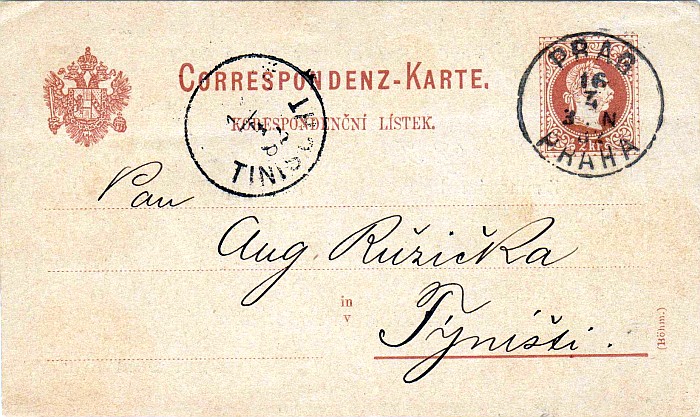 CORRESPONDENZ-KARTE.
KORESPONDENČNÍ LÍSTEK.
PRAG
16
4
3 N
PRAHA
2 kr.
TINIŠT
Pan
Aug Růžička
in
v
Týništi.
(Böhm.)